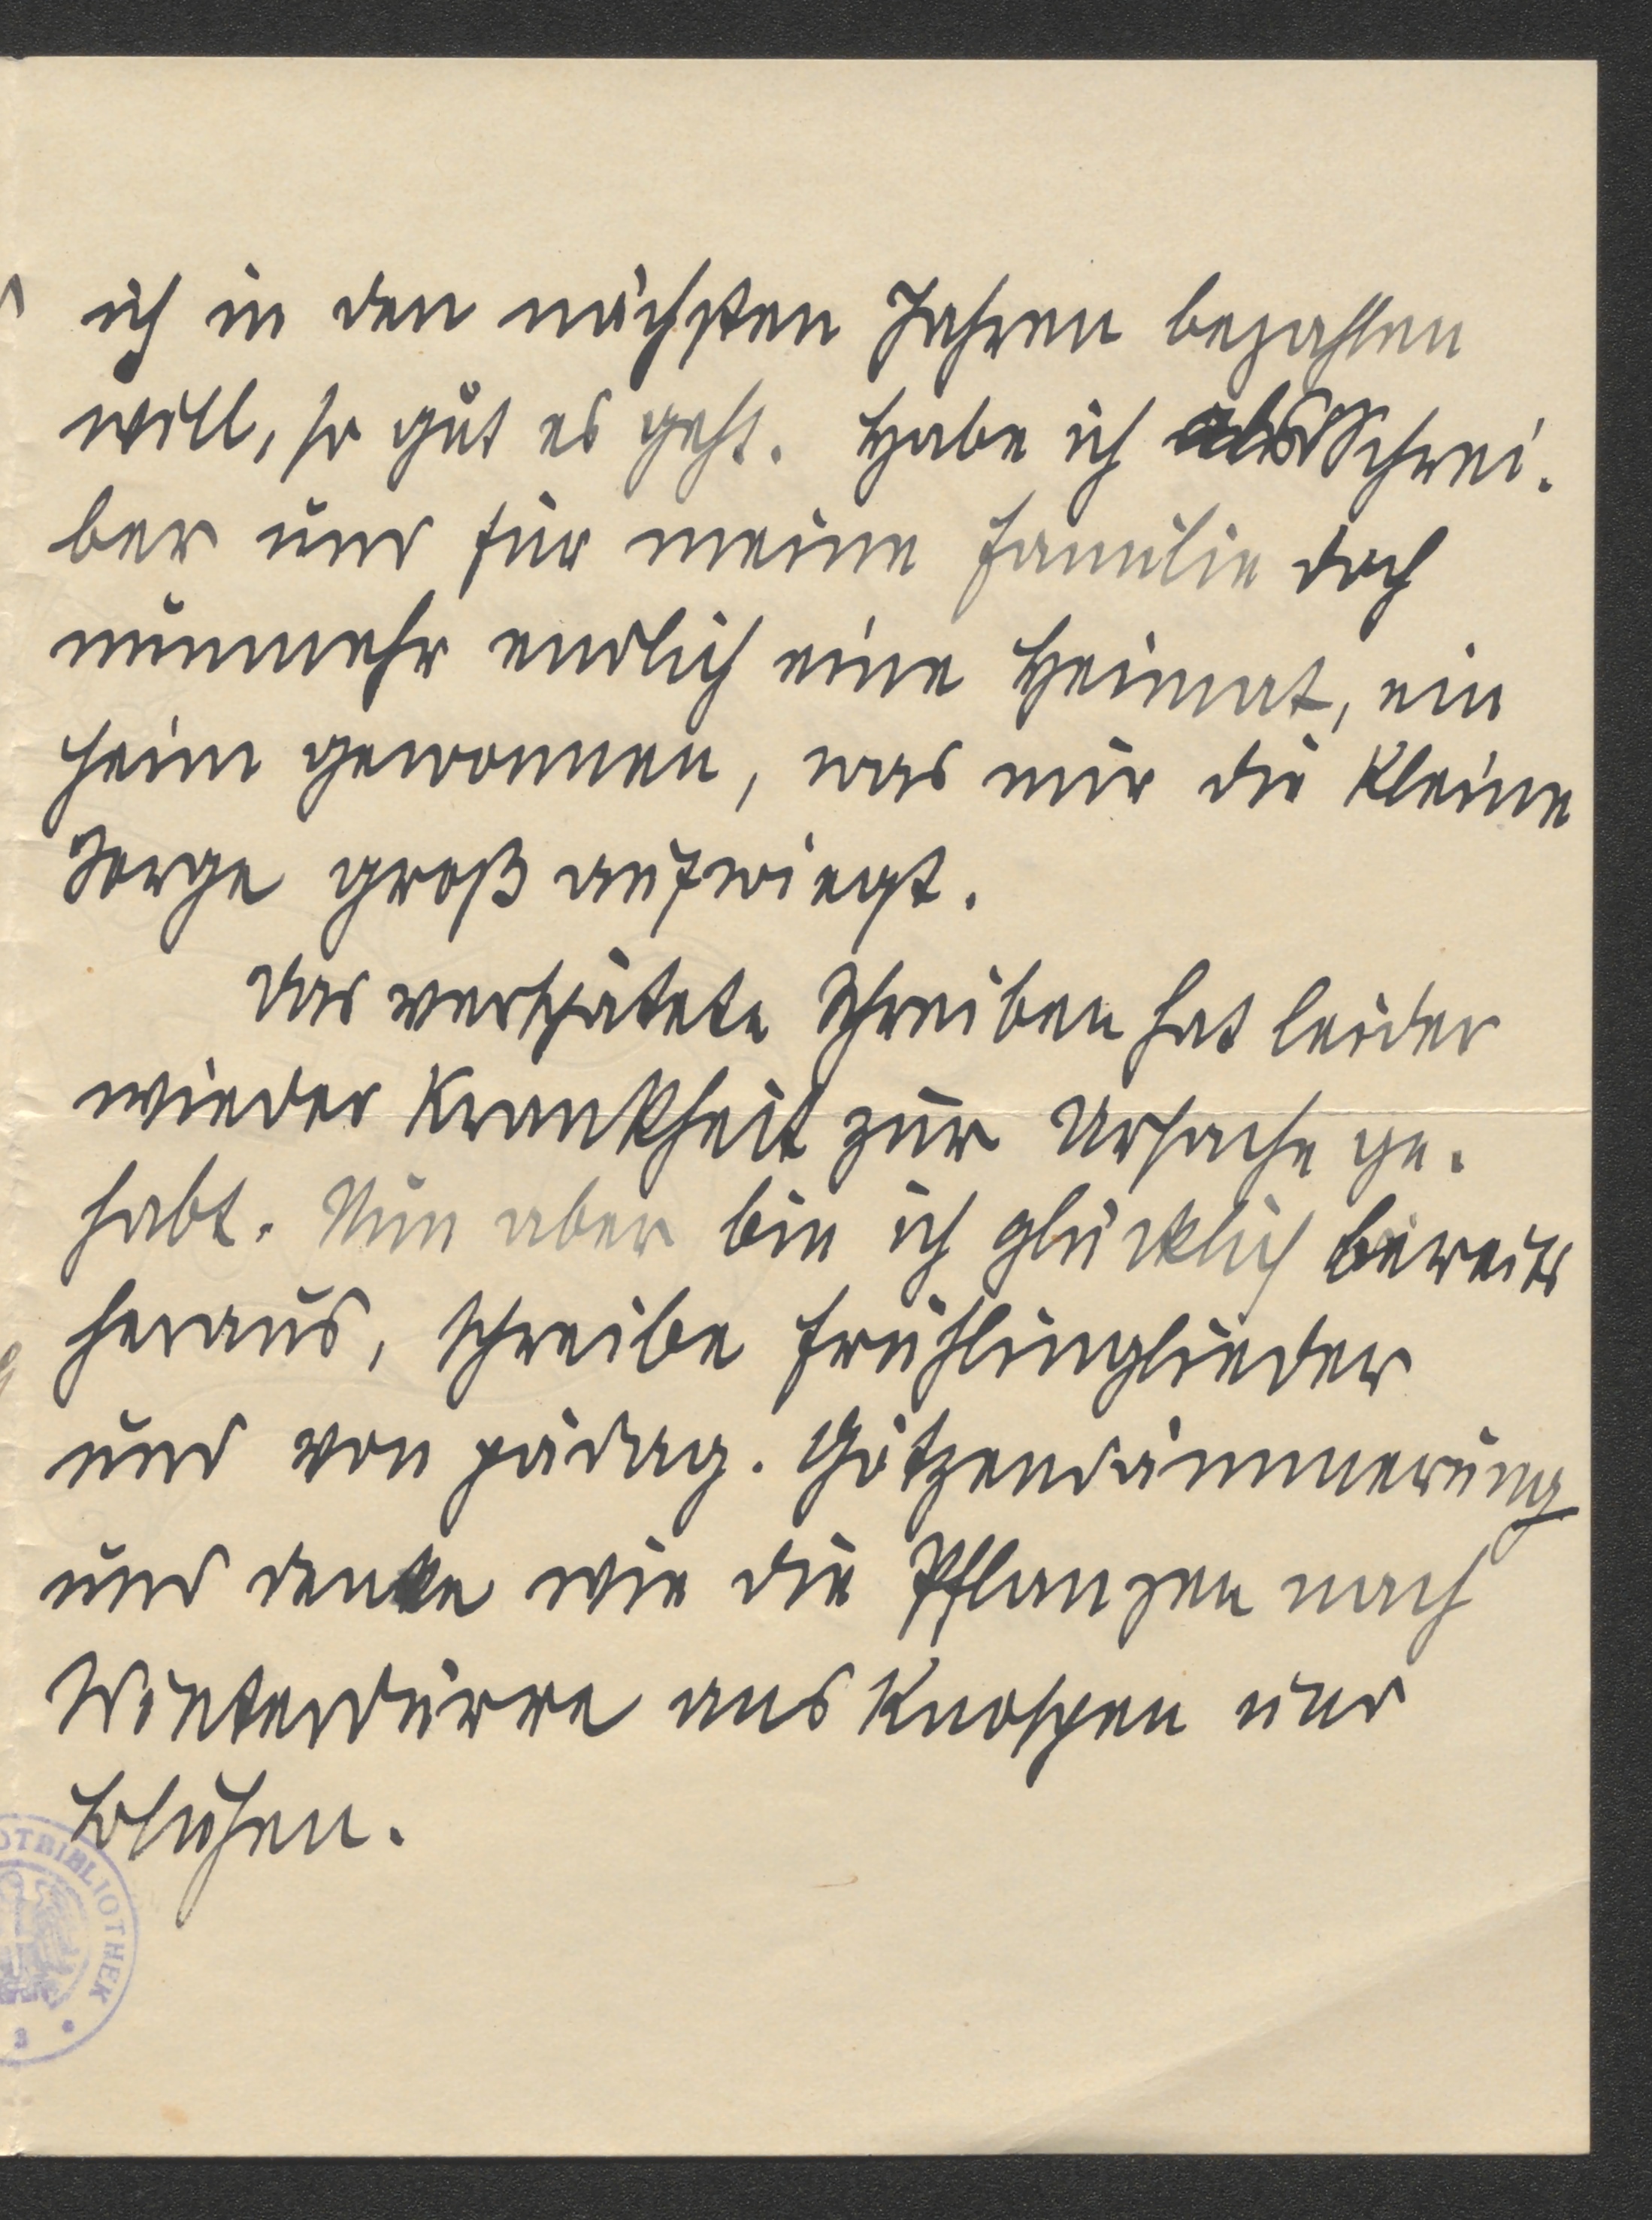 ich in den nächsten Jahren bezahlen
will, so gut es geht. Habe ich als Schrei-
ber und für meine Familie doch
nunmehr endlich eine Heimat, ein
Heim gewonnen, was mir die kleine
Sorge groß aufwiegt.
Das verspätete Schreiben hat leider
wieder Krankheit zur Ursache ge-
habt. Nun aber bin ich glücklich bereits
heraus, schreibe Frühlinglieder
und von pädag. Götzendämmerung
und denke wie die Pflanzen nach
Winterdürre ans Knospen und
Blühen.
OTBIBLIOTHEK